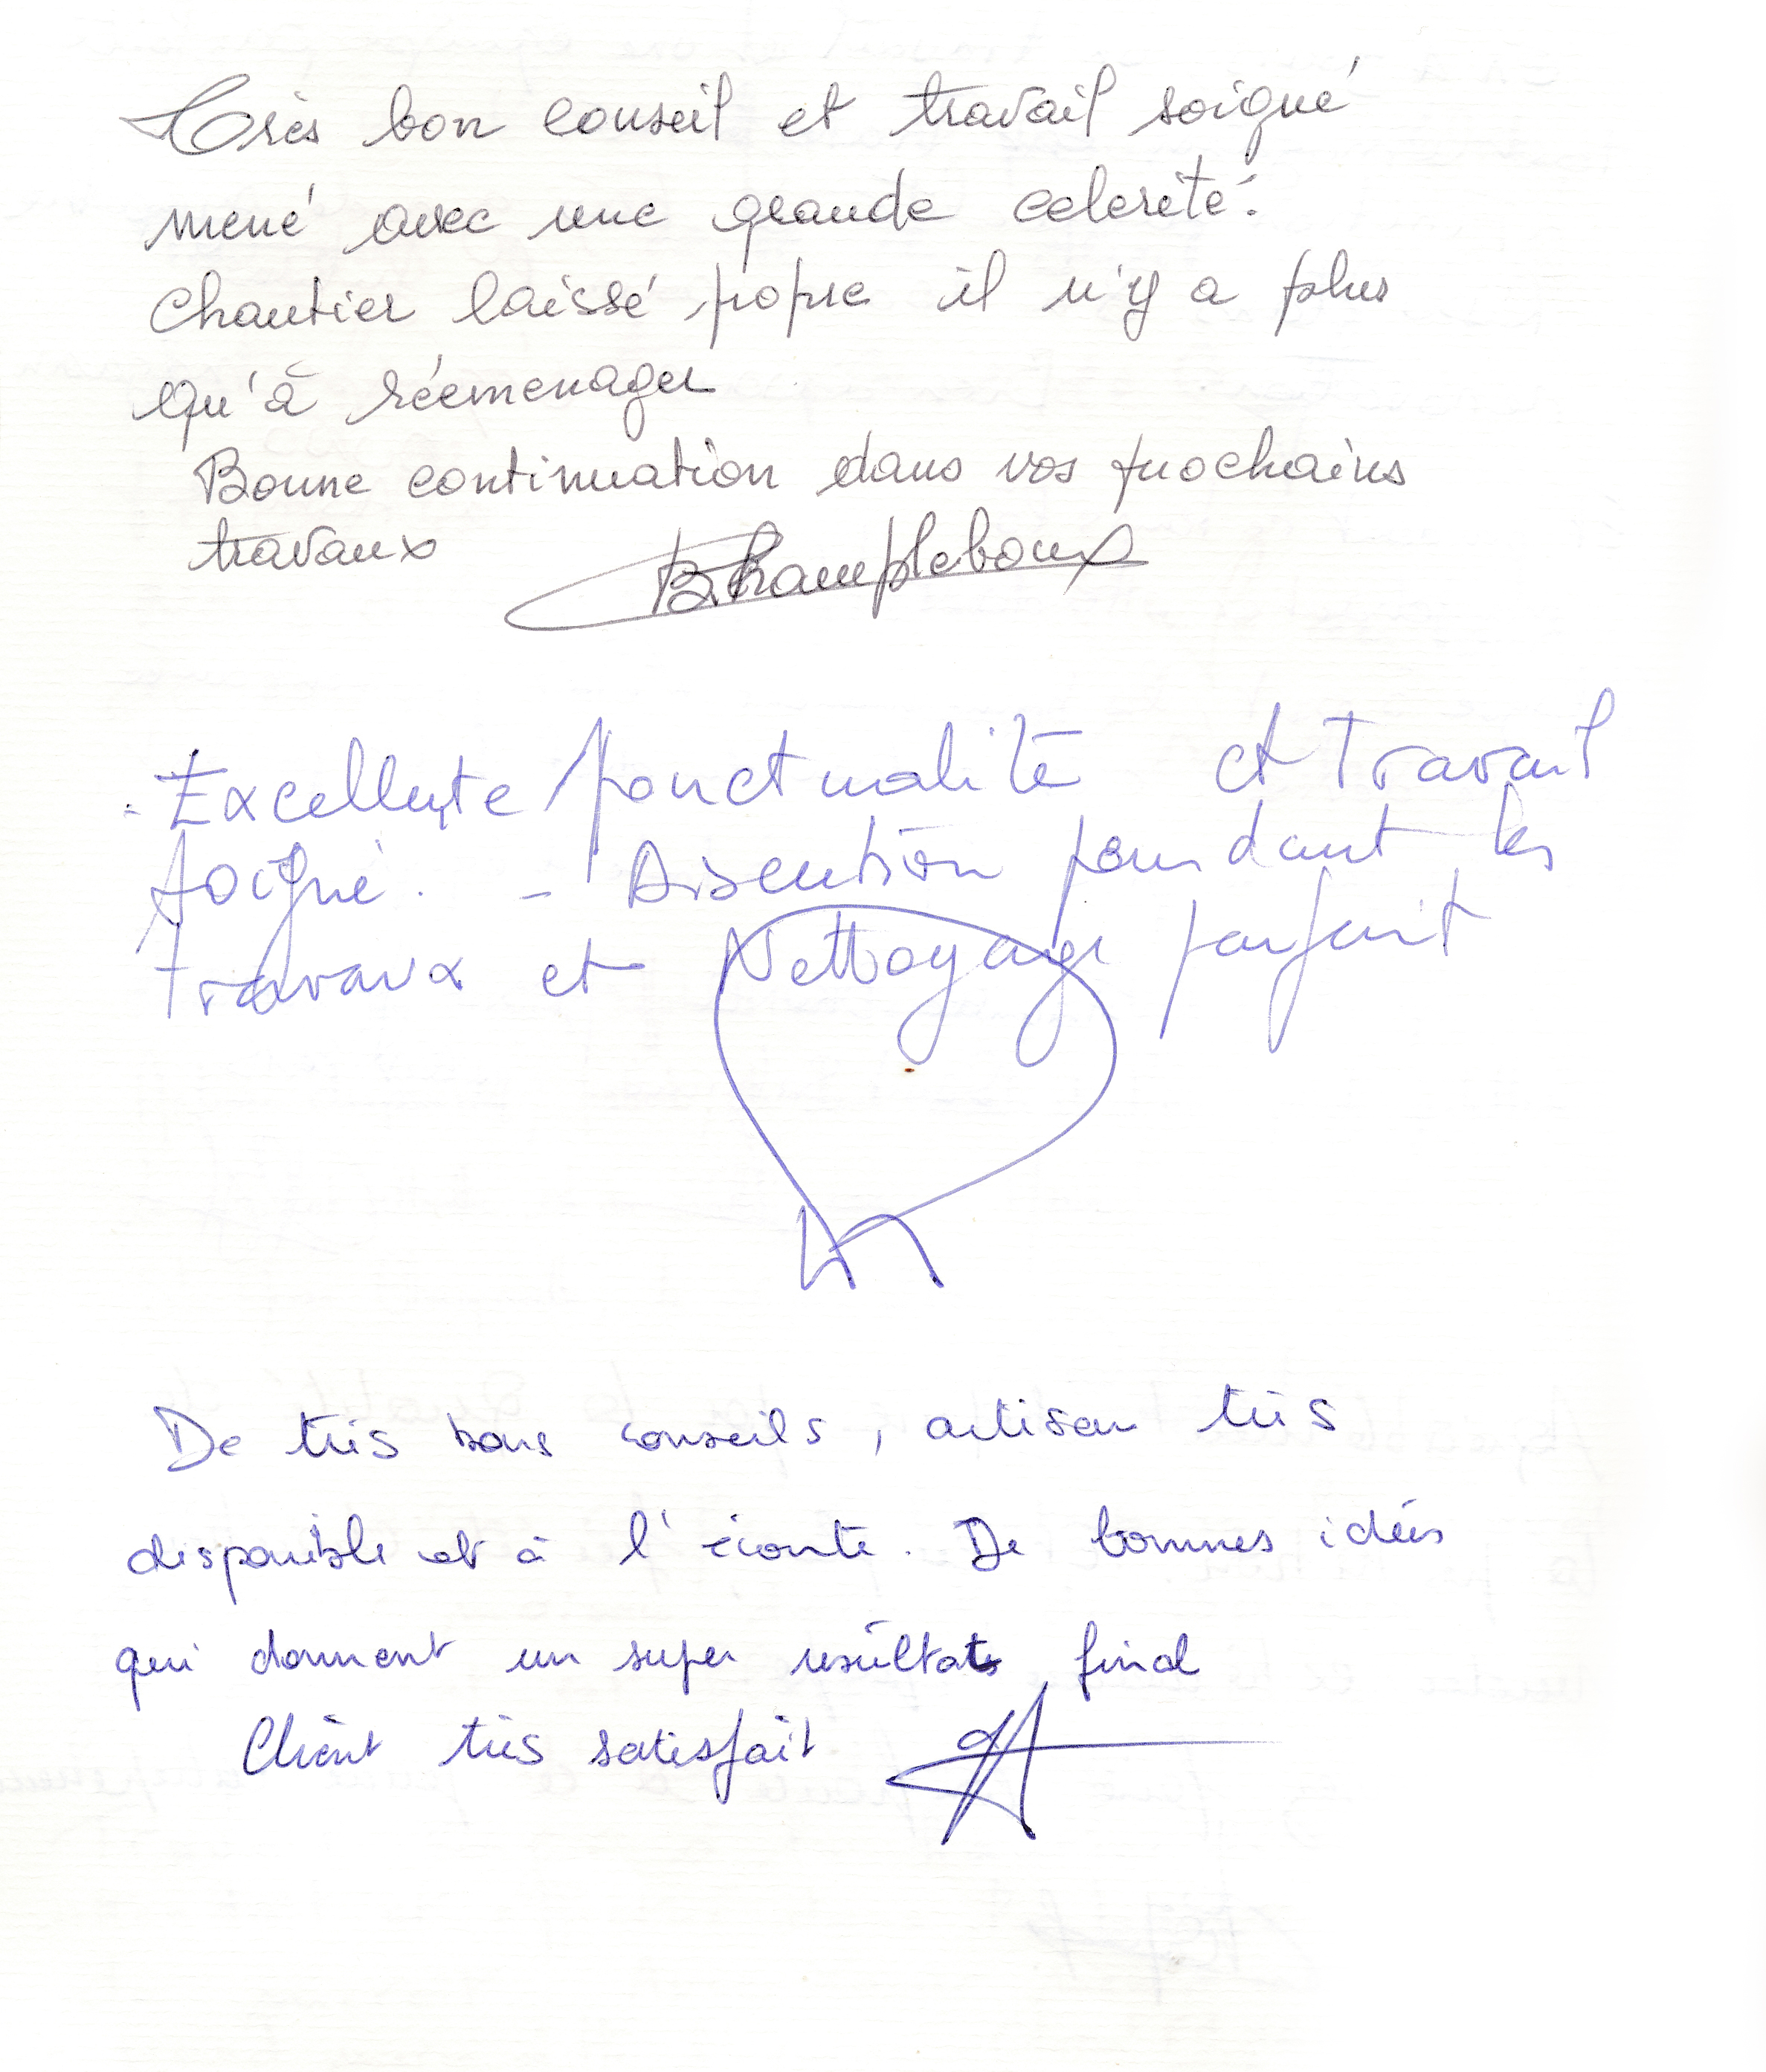 Très bon conseil et travail soigné
mené avec une grande celerité.
Chantier laissé popre il n'y a plus
qu'à réemenager
Bonne continuation dans vos prochains
travaux
B. Champleboux
- Excellente ponctualité et Travail
soigné. - Discution pendant les
Travaux et Nettoyage parfait
De très bons conseils, artisan très
disponible et à l'écoute. De bonnes idées
qui donnent un super résultat final
Client très satisfait